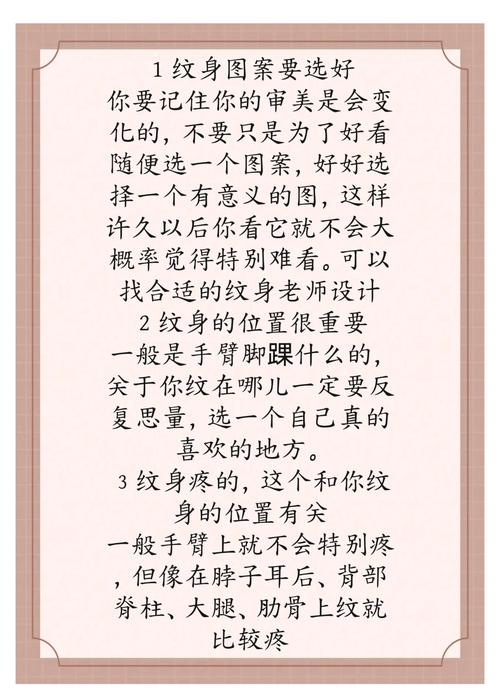 1 纹身图案要选好
你要记住你的审美是会变
化的，不要只是为了好看
随便选一个图案，好好选
择一个有意义的图，这样
许久以后你看它就不会大
概率觉得特别难看。可以
找合适的纹身老师设计
2 纹身的位置很重要
一般是手臂脚踝什么的，
关于你纹在哪儿一定要反
复思量，选一个自己真的
喜欢的地方。
3 纹身疼的，这个和你纹
身的位置有关
一般手臂上就不会特别疼
，但像在脖子耳后、背部
脊柱、大腿、肋骨上纹就
比较疼